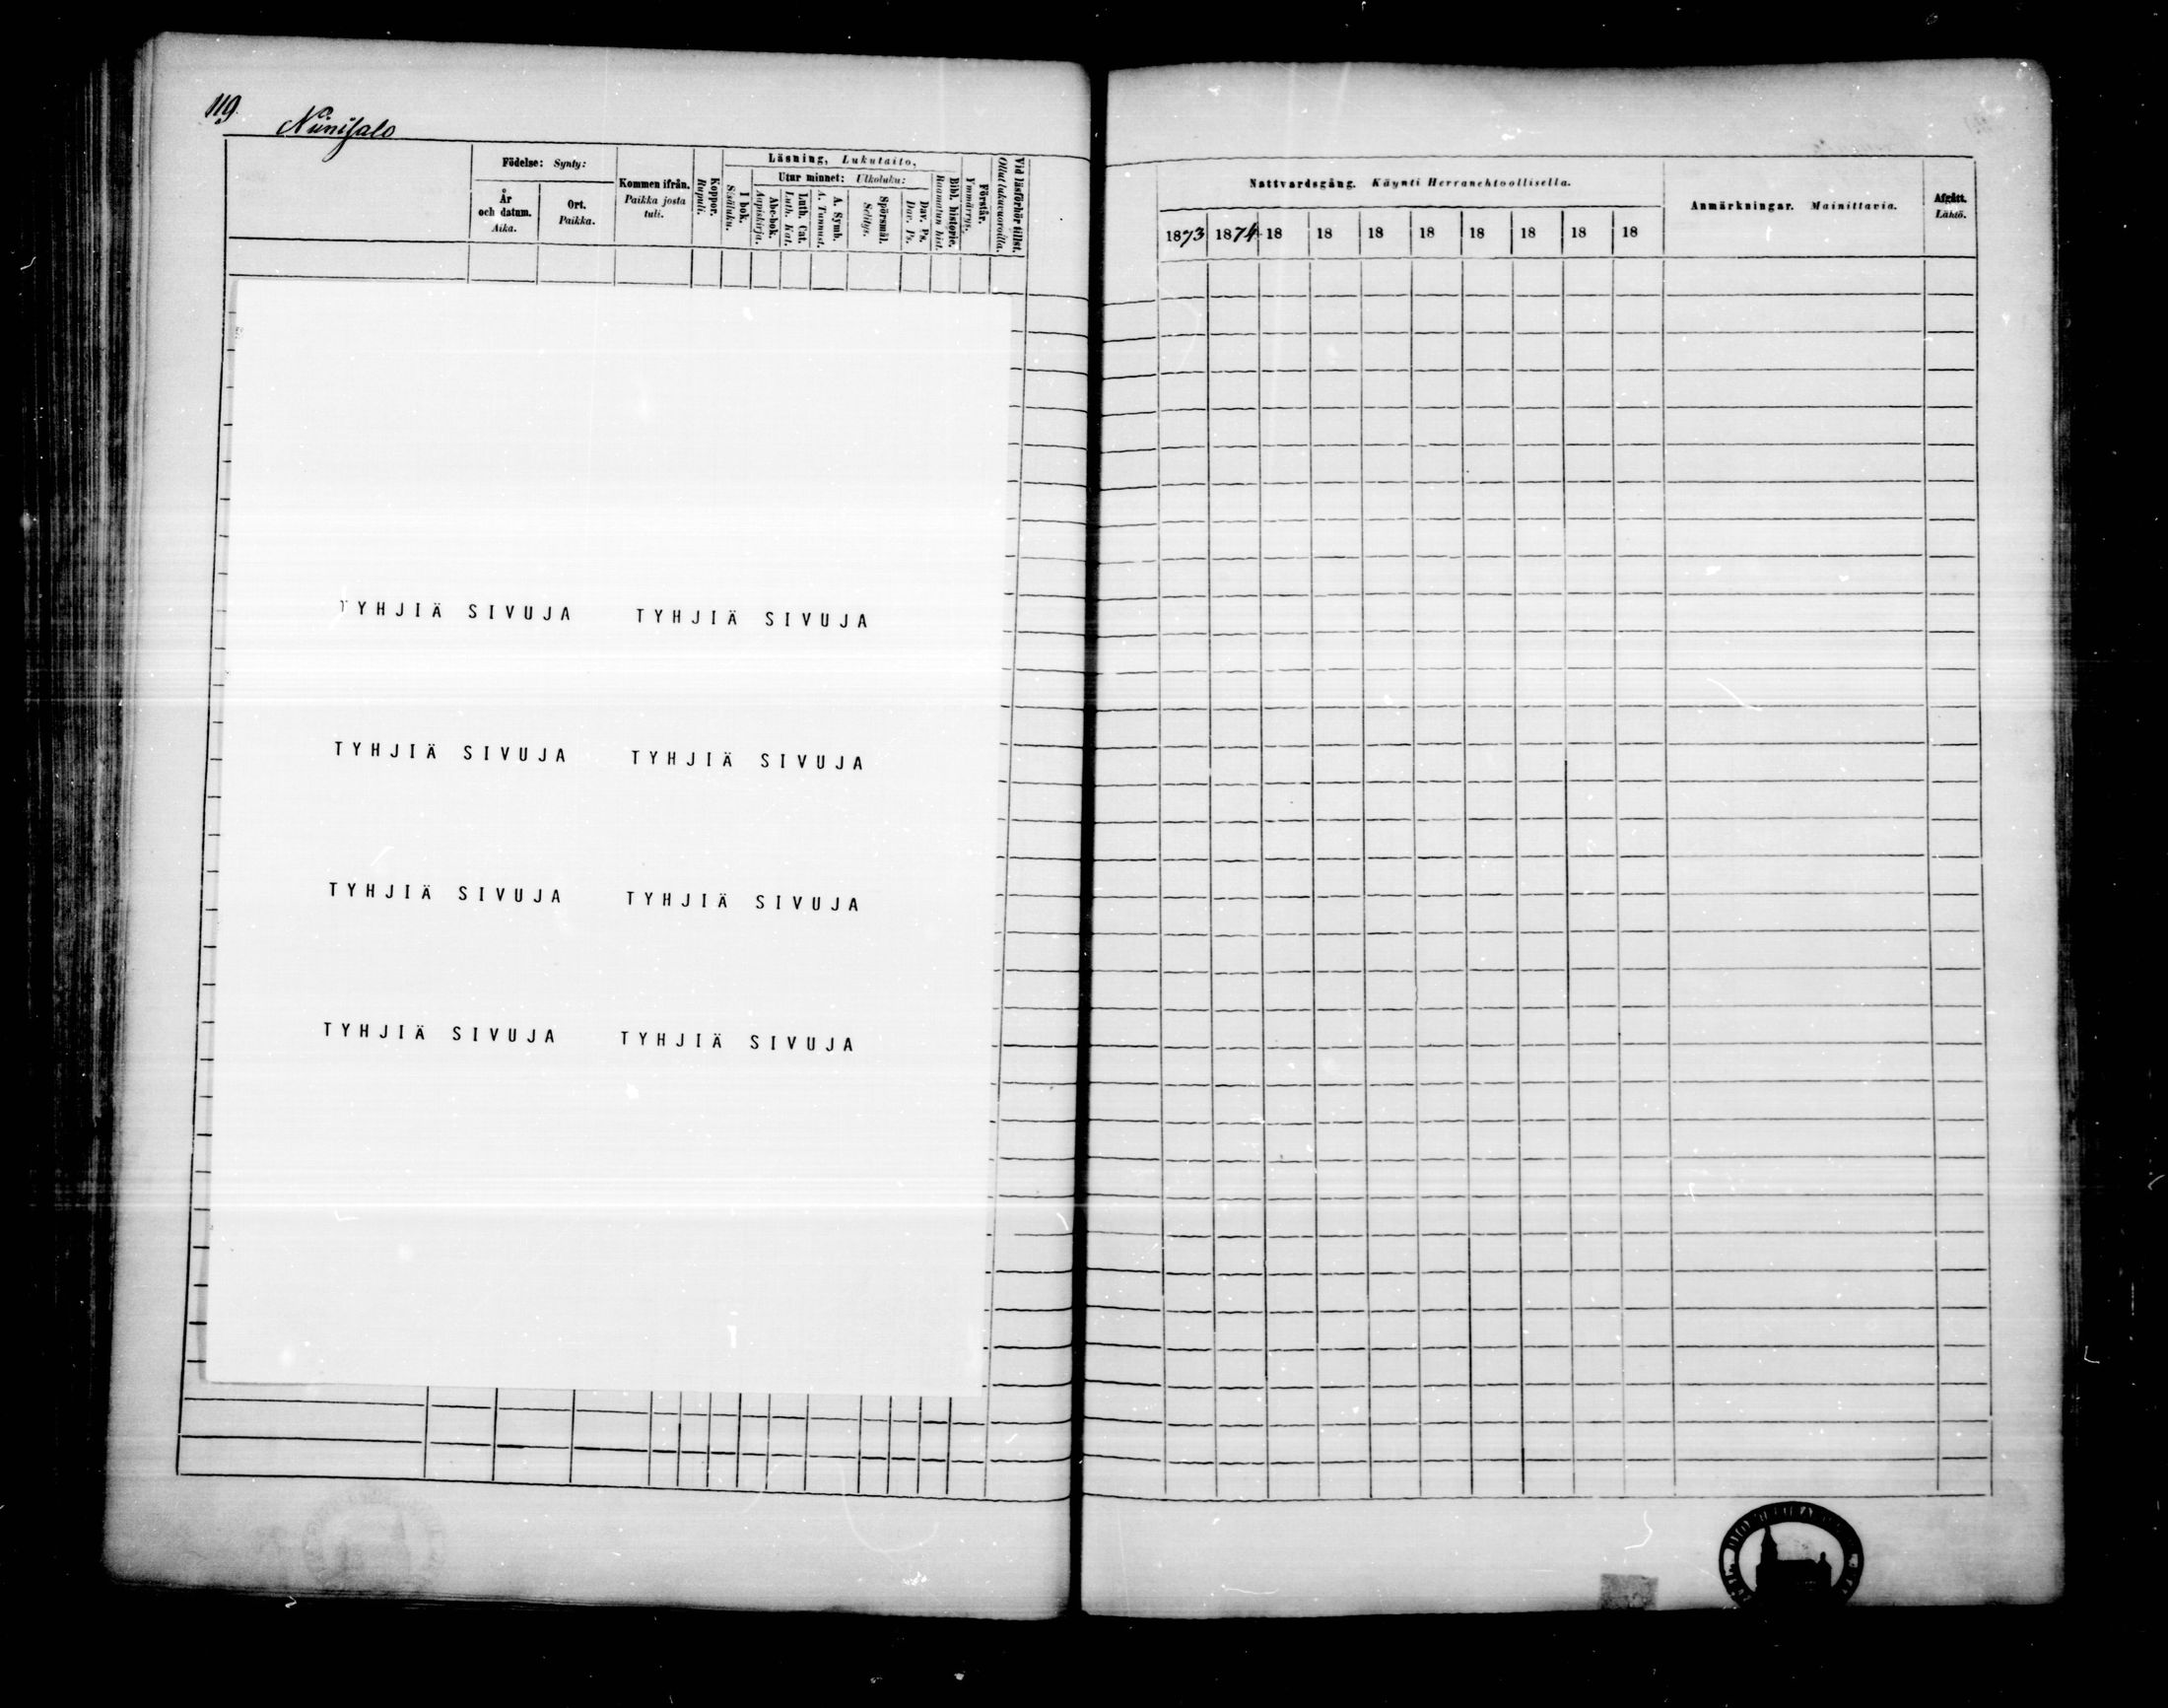 119.
Niinisalo
Födelse: Synty:
År och datum. Aika.
Ort. Paikka.
Kommen ifrån. Paikka josta tuli.
Koppor. Rupuli.
Läsning, Lukutaito,
I bok. Sisäluku.
Utur minnet: Ulkoluku:
Abc-bok. Aapiskirja.
Luth. Cat. Luth. Kat.
A. Symb. A. Tunnust.
Spörsmål. Selitys.
Dav. Ps. Dav. Ps.
Bibl. historie. Raamatun hist.
Förstår. Ymmärrys.
Vid läsförhör tillst. Ollut lukuvuoroilla.
TYHJIÄ SIVUJA TYHJIÄ SIVUJA
TYHJIÄ SIVUJA TYHJIÄ SIVUJA
TYHJIÄ SIVUJA TYHJIÄ SIVUJA
TYHJIÄ SIVUJA TYHJIÄ SIVUJA
Nattvardsgång. Käynti Herranehtoollisella.
1873 1874 18 18 18 18 18 18 18 18
Anmärkningar. Mainittavia.
Afgått. Lähtö.